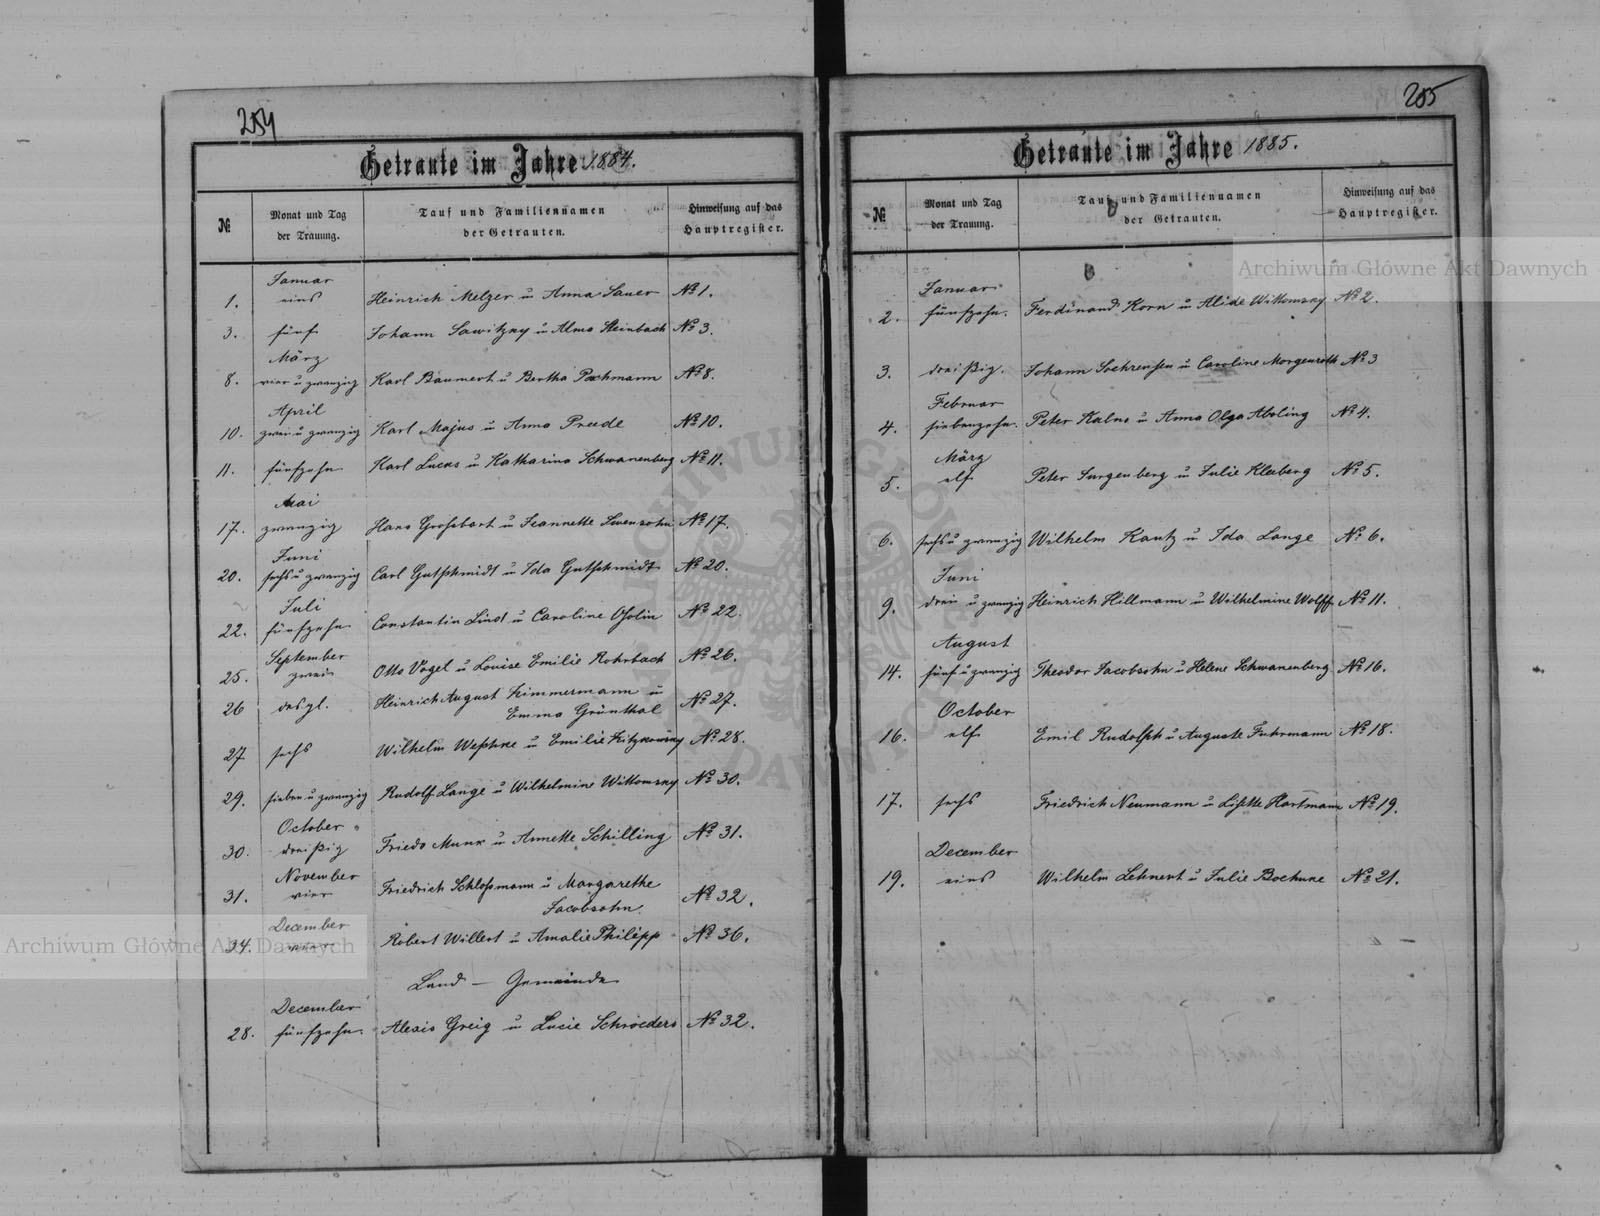 254
Getraute im Jahre 1884.
№
Monat und Tag
der Trauung.
Tauf und Familiennamen
der Getrauten.
Hinweisung auf das
Hauptregister.
Januar
1. eins Heinrich Melzer u Anna Sauer № 1.
3. fünf Johann Sawitzky u Alma Steinbach № 3.
März
8. vier u zwanzig Karl Baumert u Bertha Pachmann № 8.
April
10. zwei u zwanzig Karl Majus u Anna Preede № 10.
11. fünfzehn Karl Lucas u Katharina Schwanenberg № 11.
Mai
17. zwanzig Hans Grossbart u Jeannette Swensohn № 17.
Juni
20. sechs u zwanzig Carl Gutschmidt u Ida Gutschmidt № 20.
Juli
22. fünfzehn Constantin Lind u Caroline Osolin № 22.
September
25. zwei Otto Vogel u Louise Emilie Rohrbach № 26.
26 desgl. Heinrich August Zimmermann u
Emma Grünthal № 27.
27 sechs Wilhelm u Emilie № 28.
29. sieben u zwanzig Rudolf Lange u Wilhelmine Wittomsky № 30.
October
30. dreißig Friedo Munk u Annette Schilling № 31.
November
31. vier Friedrich Schlossmann u Margarethe
Jacobsohn. № 32.
December
34. Robert Willert u Amalie Philipp № 36.
Land — Gemeinde
December
28. fünfzehn Alexis Greig u Lucie Schroeders № 32.
255
Getraute im Jahre 1885.
№
Monat und Tag
der Trauung.
Tauf und Familiennamen
der Getrauten.
Hinweisung auf das
Hauptregister.
Januar
2. fünfzehn. Ferdinand Korn u Alide Wittomsky № 2.
3. dreißig. Johann Soehrensen u Caroline Morgenroth № 3
Februar
4. siebenzehn. Peter Kalns u Anna Olga Aboling № 4.
März
5. elf Peter Surgenberg u Julie Kleeberg № 5.
6. sechs u zwanzig Wilhelm Kautz u Ida Lange № 6.
Juni
9. drei u zwanzig Heinrich Hillmann u Wilhelmine Wolff № 11.
August
14. fünf u zwanzig Theodor Jacobsohn u Helene Schwanenberg № 16.
October
16. elf Emil Rudolph u Auguste Fuhrmann № 18.
17. sechs Friedrich Neumann u Lisette Hartmann № 19.
December
19. eins Wilhelm Lehnert u Julie Bochune № 21.
Archiwum Główne Akt Dawnych
Archiwum Główne Akt Dawnych
ARCHIWUM GŁÓWNE AKT DAWNYCH